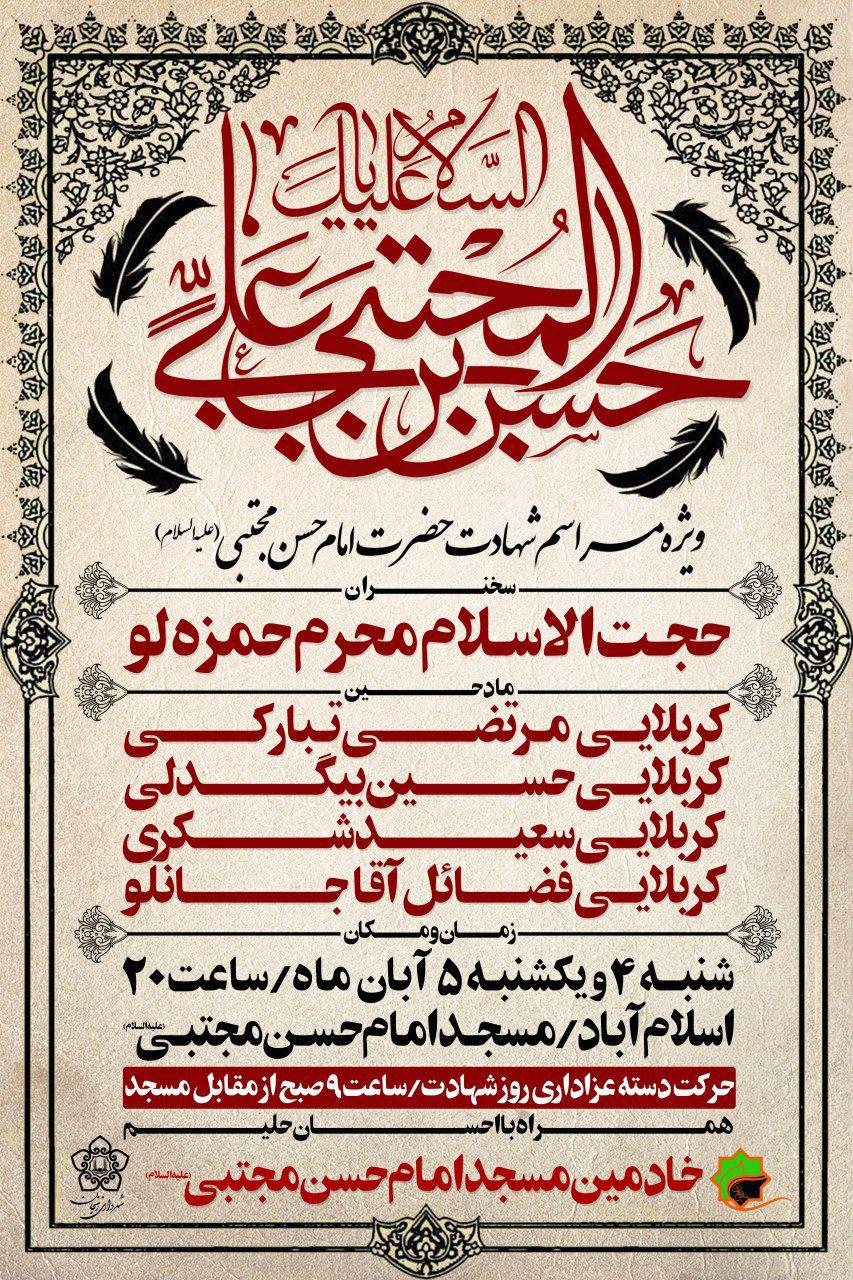 السلام علیک
حسن بن علی المجتبی
ویژه مراسم شهادت حضرت امام حسن مجتبی (علیه السلام)
سخنران
حجت الاسلام محرم حمزه لو
مادحین
کربلایی مرتضی تبارکی
کربلایی حسین بیگدلی
کربلایی سعید شکری
کربلایی فضائل آقاجانلو
زمان و مکان
شنبه ۴ و یکشنبه ۵ آبان ماه/ساعت ۲۰
اسلام آباد/مسجد امام حسن مجتبی (علیه السلام)
حرکت دسته عزاداری روز شهادت/ساعت ۹ صبح از مقابل مسجد
همراه با احسان حلیم
خادمین مسجد امام حسن مجتبی (علیه السلام)
شهرداری زنجان